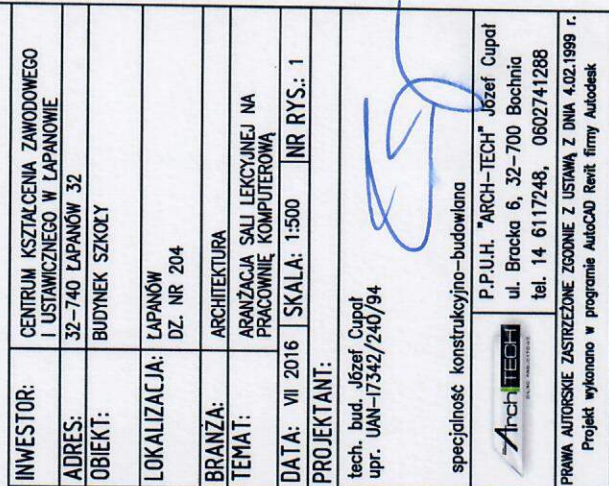 INWESTOR: CENTRUM KSZTAŁCENIA ZAWODOWEGO
I USTAWICZNEGO W ŁAPANOWIE
ADRES: 32-740 ŁAPANÓW 32
OBIEKT: BUDYNEK SZKOŁY
LOKALIZACJA: ŁAPANÓW
DZ. NR 204
BRANŻA: ARCHITEKTURA
TEMAT: ARANŻACJA SALI LEKCYJNEJ NA
PRACOWNIĘ KOMPUTEROWĄ
DATA: VII 2016 SKALA: 1:500 NR RYS.: 1
PROJEKTANT:
tech. bud. Józef Cupał
upr. UAN-I7342/240/94
specjalność konstrukcyjno-budowlana
Arch TECH
P.P.U.H. "ARCH-TECH" Józef Cupał
ul. Bracka 6, 32-700 Bochnia
tel. 14 6117248, 0602741288
PRAWA AUTORSKIE ZASTRZEŻONE ZGODNIE Z USTAWĄ Z DNIA 4.02.1999 r.
Projekt wykonano w programie AutoCAD Revit firmy Autodesk